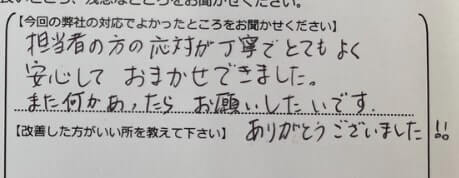 良いところ、残念なところをお聞かせください。
【今回の弊社の対応でよかったところをお聞かせください】
担当者の方の応対が丁寧でとてもよく
安心して おまかせできました。
また何かあったら お願いしたいです.
【改善した方がいい所を教えて下さい】 ありがとうございました!!